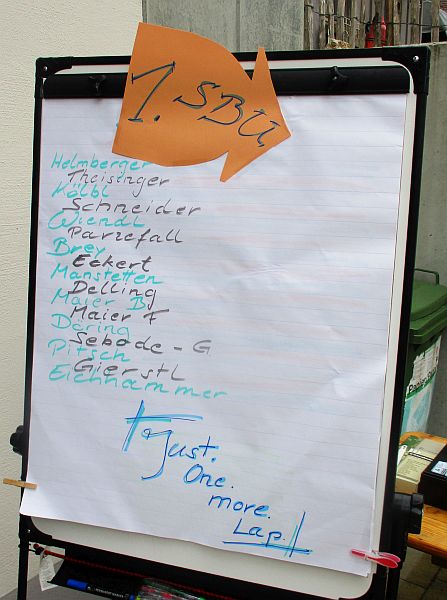 1. SBU
Helmberger
Theisinger
Kölbl
Schneider
Wiendl
Parzefall
Brey
Eckert
Manstetten
Delling
Maier B
Maier F
Döring
Sebode - G
Pitsch
Gierstl
Eichhammer
Just.
One.
more.
Lap.